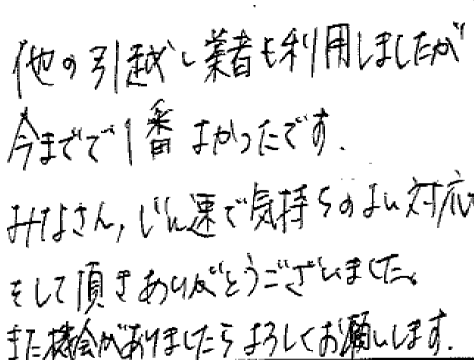 他の引越し業者も利用しましたが
今までで1番よかったです.
みなさん,じん速で気持ちのよい対応
をして頂きありがとうございました。
また機会がありましたらよろしくお願いします.